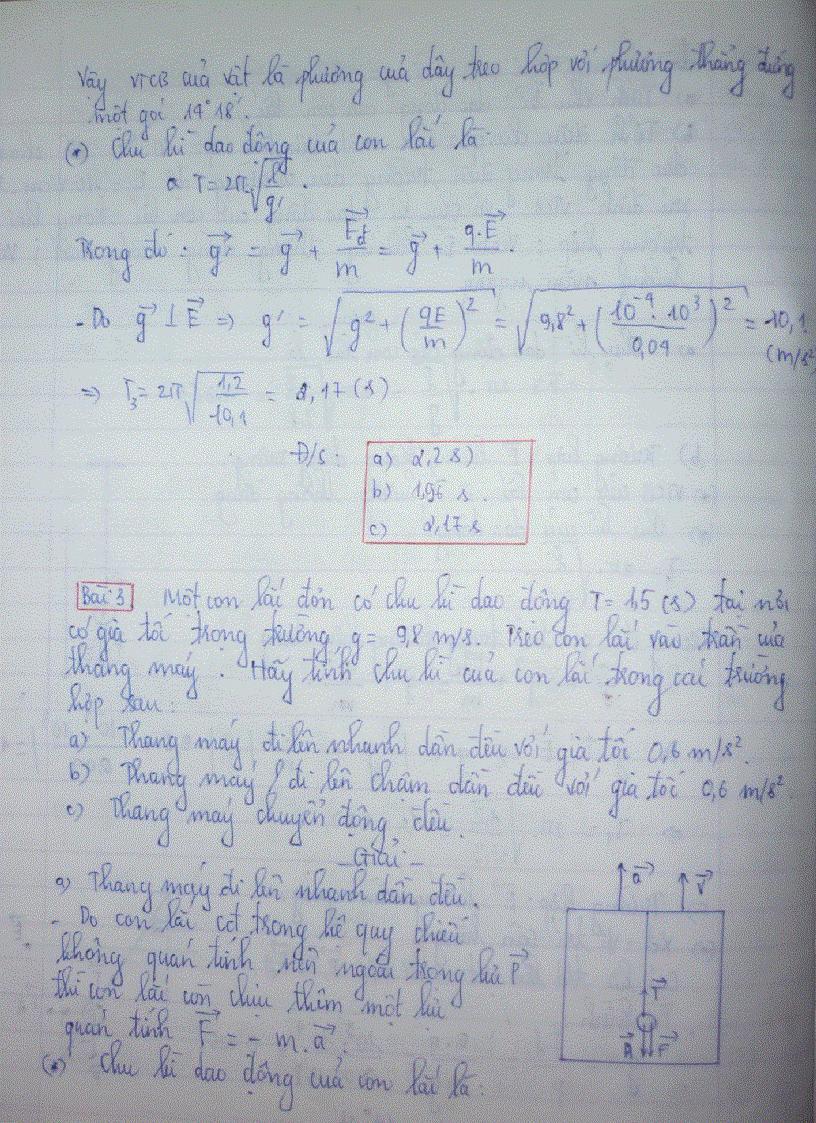 Vậy VTCB của vật là phương của dây treo hợp với phương thẳng đứng
một góc 14°18'.
(*) Chu kì dao động của con lắc là:
T = 2π√(l/g').
Trong đó: g⃗' = g⃗ + F⃗đ/m = g⃗ + q.E⃗/m.
- Do g⃗ ⊥ E⃗ => g' = √(g² + (qE/m)²) = √(9,8² + (10⁻⁴.10³/0,04)²) = 10,1. (m/s²)
=> T₃ = 2π√(1,2/10,1) = 2,17 (s)
Đ/s: a) 2,2 s)
b) 1,96 s.
c) 2,17 s
Bài 3 Một con lắc đơn có chu kì dao động T = 1,5 (s) tại nơi
có gia tốc trọng trường g = 9,8 m/s. Treo con lắc vào trần của
thang máy. Hãy tính chu kì của con lắc trong các trường
hợp sau:
a) Thang máy đi lên nhanh dần đều với gia tốc 0,6 m/s².
b) Thang máy đi lên chậm dần đều với gia tốc 0,6 m/s².
c) Thang máy chuyển động đều.
- Giải -
a) Thang máy đi lên nhanh dần đều.
- Do con lắc cđ trong hệ quy chiếu
không quán tính nên ngoài trọng lực P⃗
thì con lắc còn chịu thêm một lực
quán tính F⃗ = - m.a⃗.
(*) Chu kì dao động của con lắc là:
a⃗ v⃗
T⃗
P⃗ F⃗